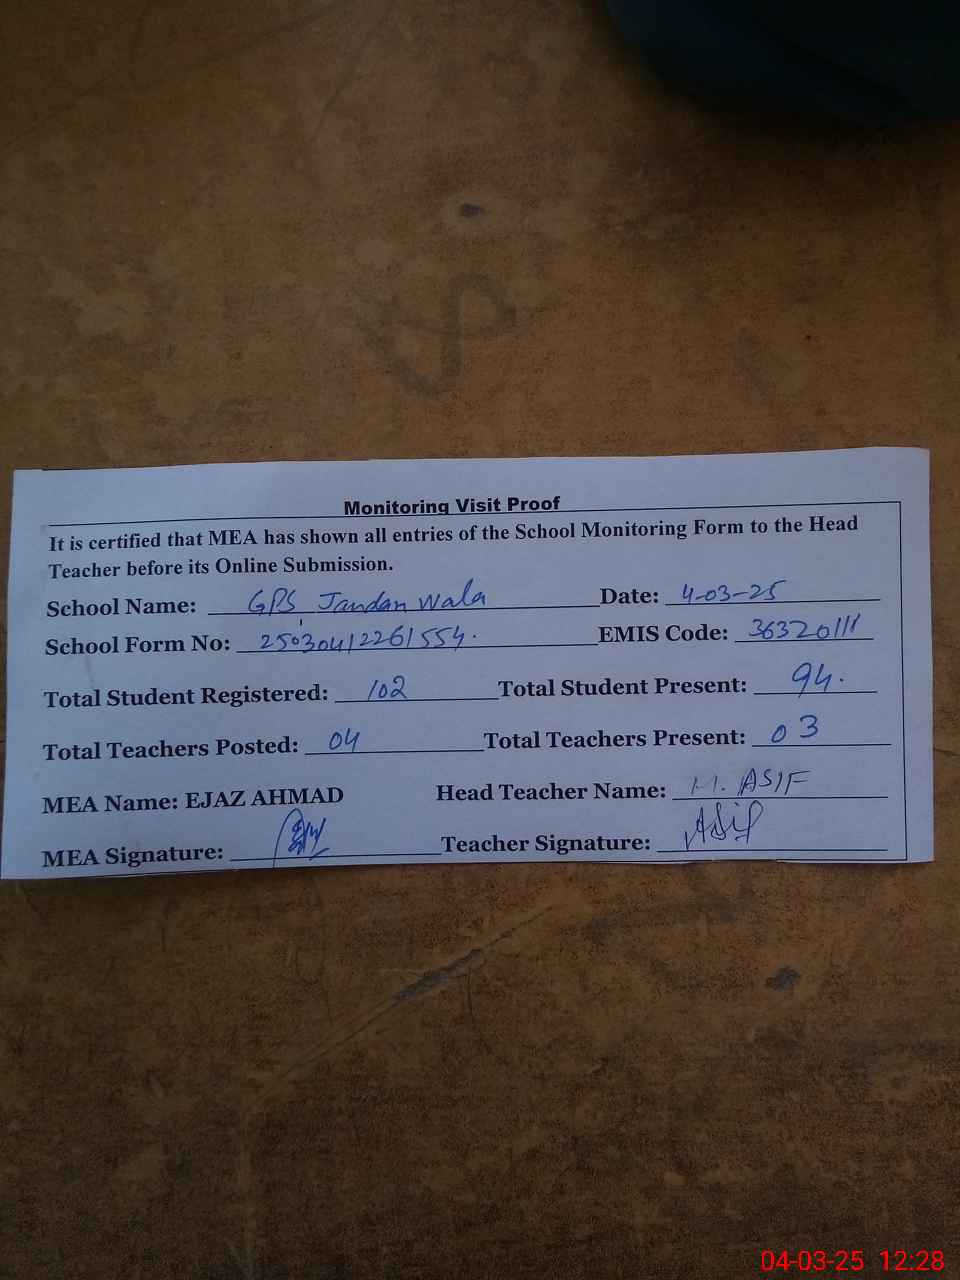 Monitoring Visit Proof
It is certified that MEA has shown all entries of the School Monitoring Form to the Head
Teacher before its Online Submission.
School Name: GPS Jandan Wala Date: 4-03-25
School Form No: 250304122261554. EMIS Code: 36320111
Total Student Registered: 102 Total Student Present: 94.
Total Teachers Posted: 04 Total Teachers Present: 03
MEA Name: EJAZ AHMAD Head Teacher Name: M. ASIF
MEA Signature: Teacher Signature: Asif
04-03-25 12:28